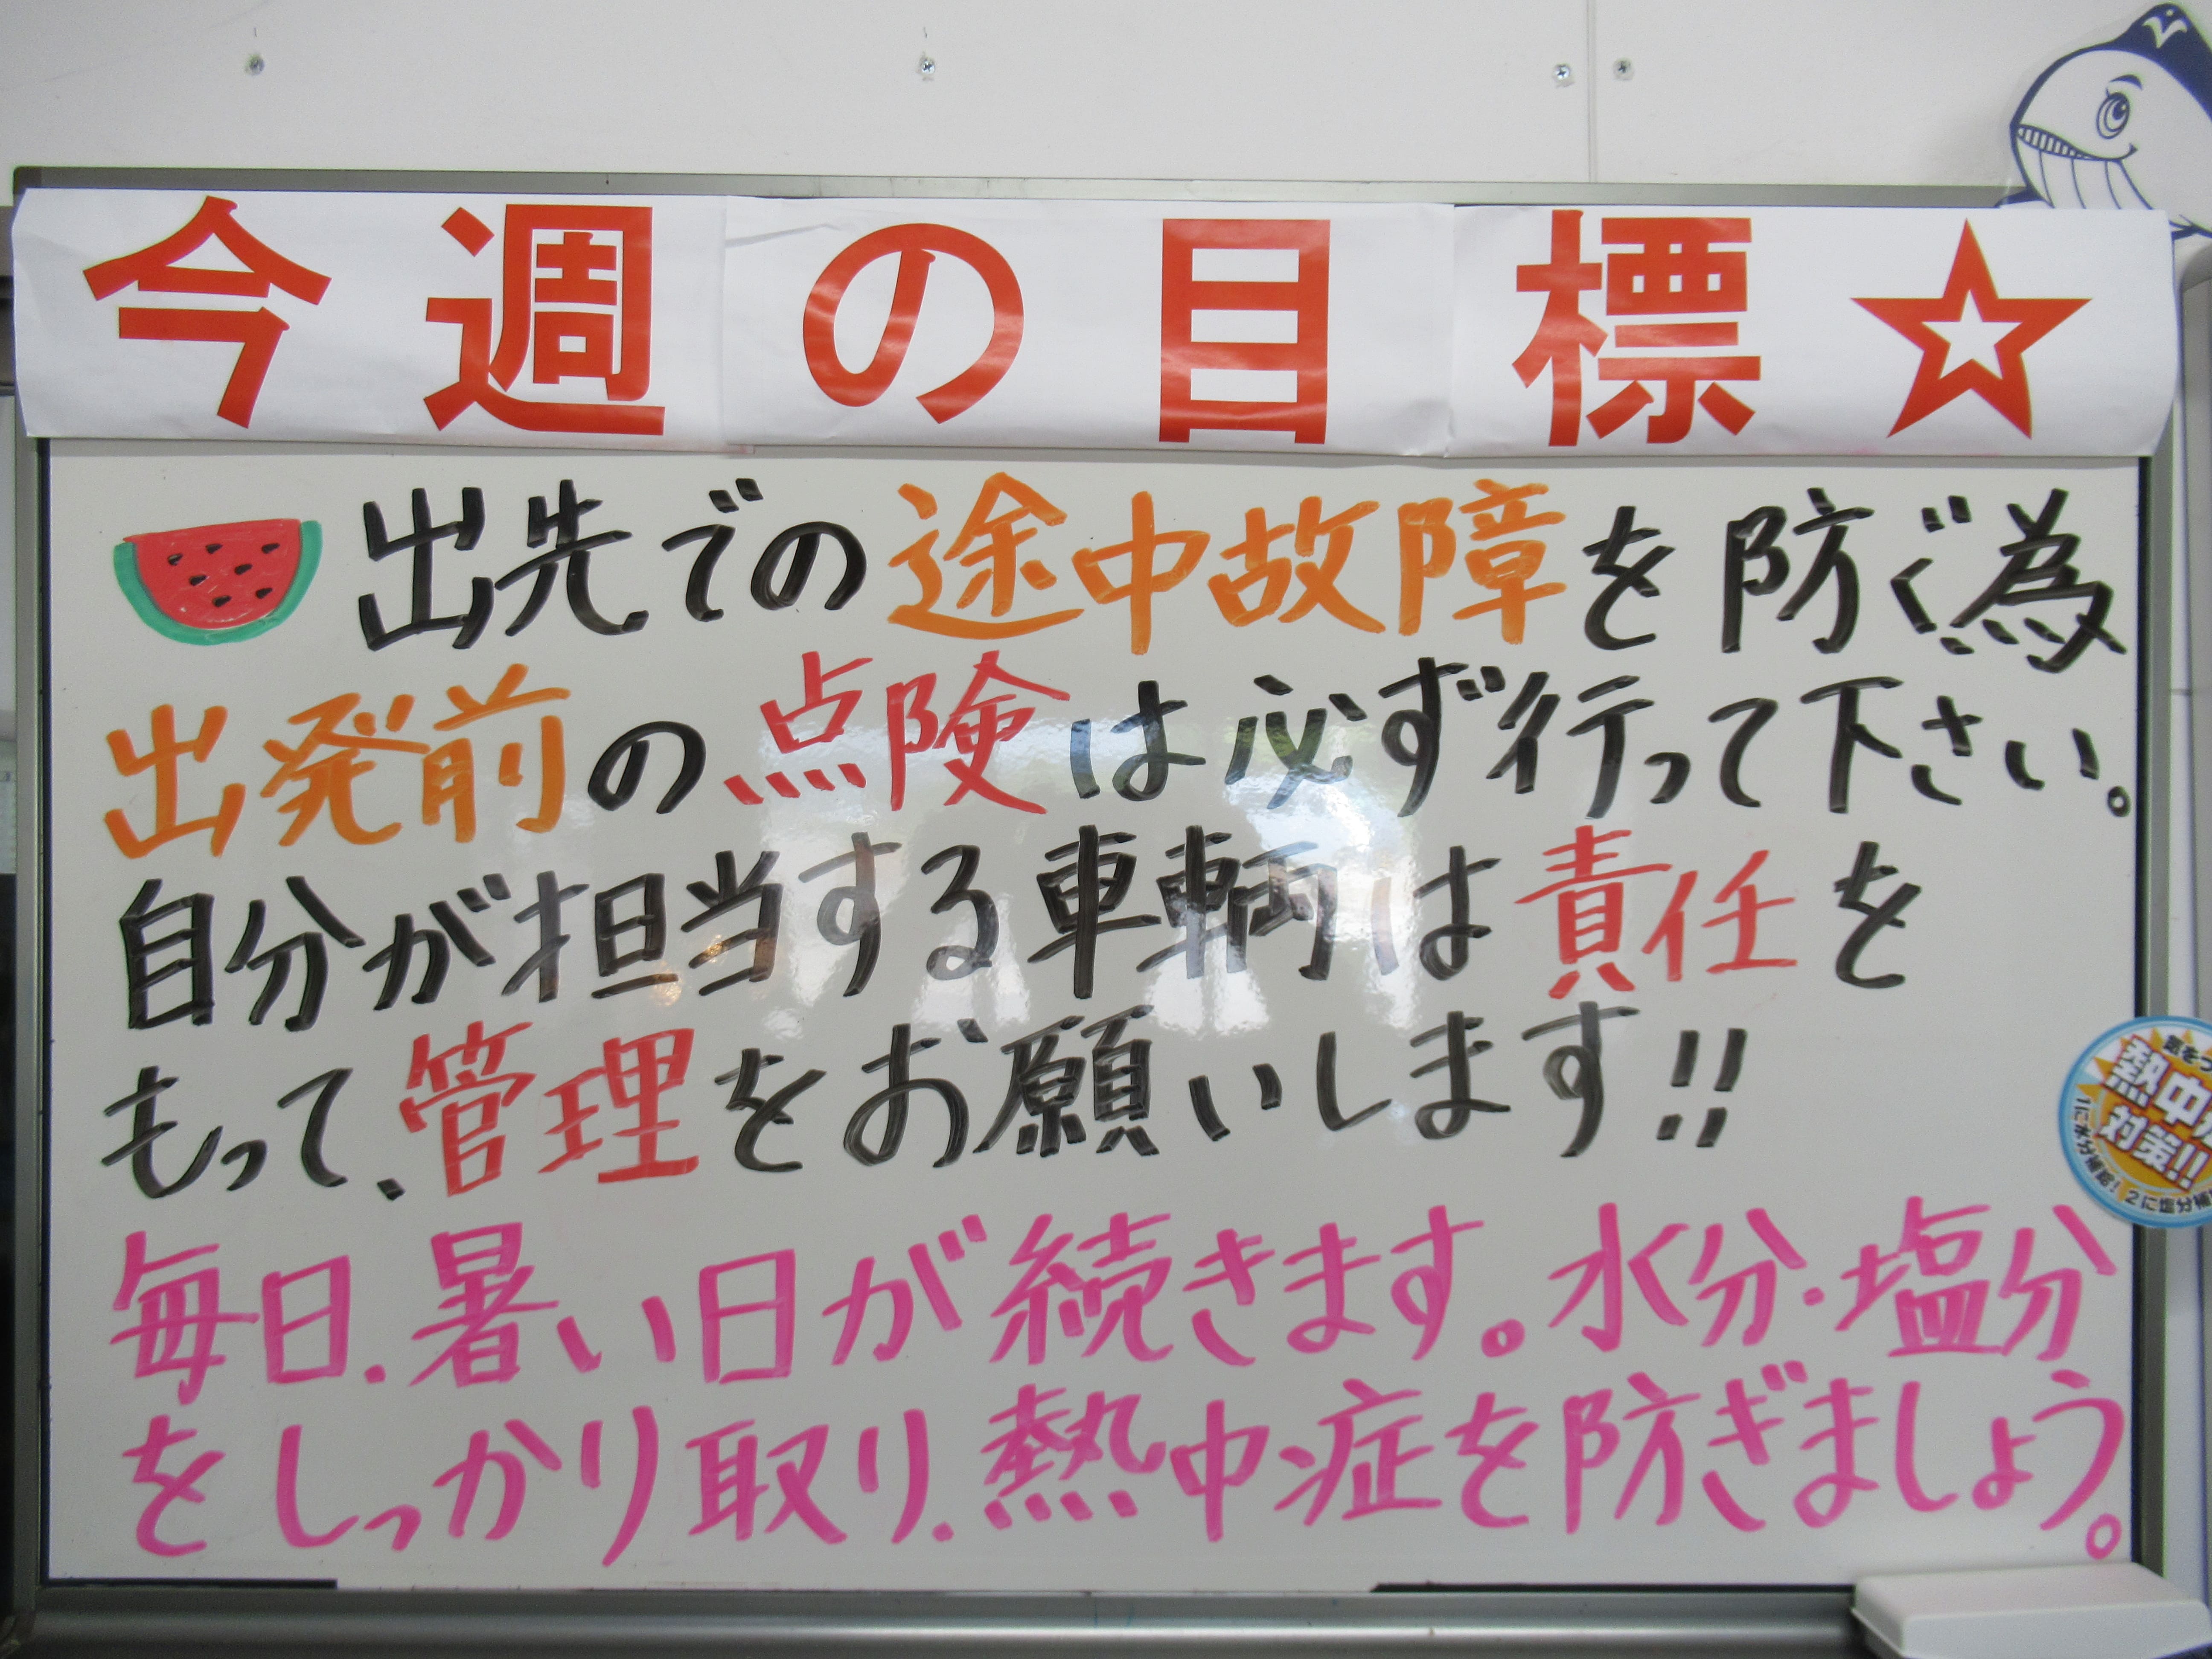 今週の目標☆
出先での途中故障を防ぐ為
出発前の点険は必ず行って下さい。
自分が担当する車輌は責任を
もって、管理をお願いします!!
毎日、暑い日が続きます。水分・塩分
をしっかり取り、熱中症を防ぎましょう。
熱中
対策!!